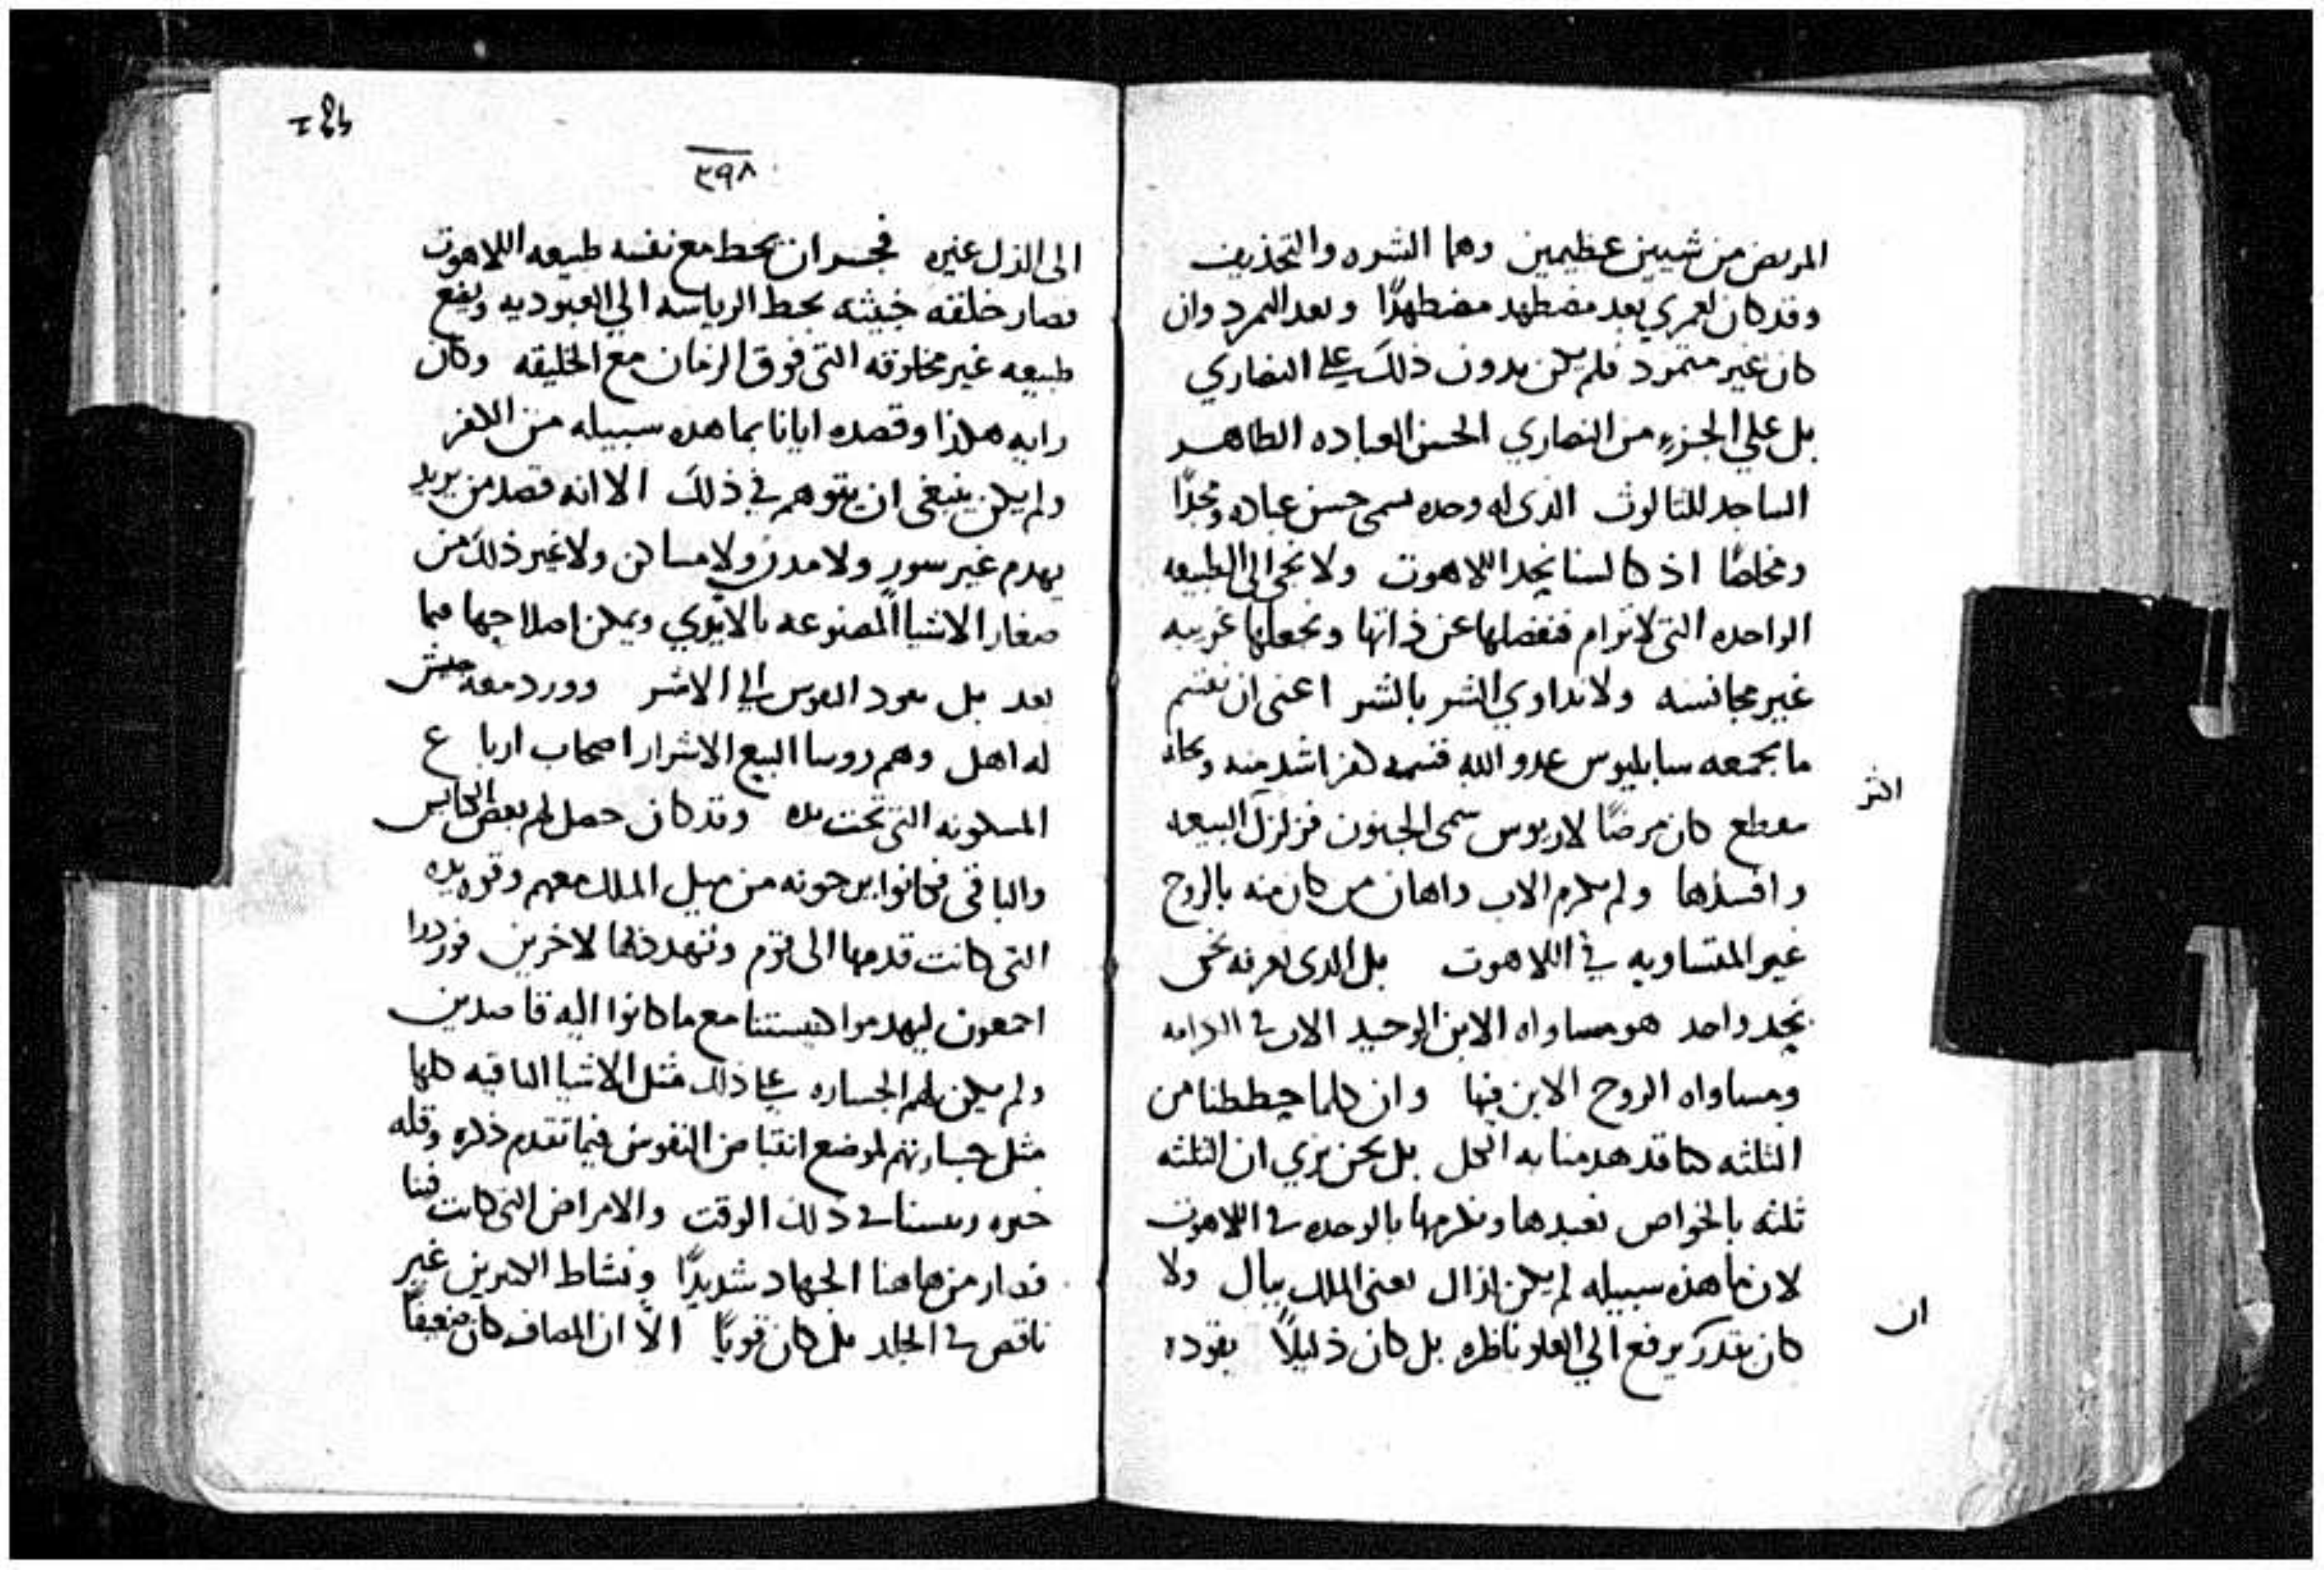 المريض من شيين عظيمين وهما الشره والتجذيف
وقد كان لعمري بعد مضطهد مضطهدًا وبعد المرد وان
كان غير متمرد فلم يكن بدون ذلك على النصاري
بل علي الجزء من النصاري الحسن العباده الطاهر
الساجد للثالوث الدى له وحده حسن عباده
ومخلصًا اذ كالسنا نجد اللاهوت ولا الى الطبيعه
الواحده التى لا ترام فنفصلها عن ذاتها ونجعلها غريبه
غير مجانسه ولا نداوي الشر بالشر اعنى ان نقسم
ما بجمعه سابليوس عدو الله قسمه كفر اشد منه
اكثر
مقطع كان مرضًا لاريوس سمى الجنون فزلزل البيعه
وافسدها ولم يكرم الاب واهان من كان منه بالروح
غير المتساويه في اللاهوت بل الدى نعرفه نحن
بجد واحد هو مساواه الابن الوحيد الاب في الكرامه
ومساواه الروح الابن فيها وان كلما حططنا من
الثلثه كنا قد هدمنا به الكل بل نحن نري ان الثلثه
ثلثه بالخواص نعبدها ونكرمها بالوحده في اللاهوت
لان ما هذه سبيله لم يكن اذال يعنى الملك ببال ولا
ان
كان يقدر يرفع الي العلو ناظره بل كان ذليلًا يقوده
٣٩٨
الى الذل غيره فجسر ان يحط مع نفسه طبيعه اللاهوت
فصار خلقه خبيثه بحط الرياسه الي العبوديه ويضع
طبيعه غير مخلوقه التى فوق الزمان مع الخليقه وكان
رايه هكذا وقصده ايانا بما هده سبيله من الكفر
ولم يكن ينبغى ان يتوهم في ذلك الا انه قصد من يريد
يهدم غير سور ولا مدن ولا مساكن ولا غير ذلك من
صغار الاشيا المصنوعه بالايدي ويمكن اصلاحها فيما
بعد بل يعود النفوس الي الاشر وورد معه جيش
له اهل وهم روسا البيع الاشرار اصحاب ارباع
المسكونه التى تحت يده وقد كان حصل لهم بعض الكنايس
والباقى فكانوا يرجونه من ميل الملك معهم وقوه يده
التى كانت قدمها الى قوم وتهدد بها لاخرين فوردوا
اجمعون ليهدموا كنيستنا مع ما كانوا اليه قاصدين
ولم يكن لهم الجساره على ذلك مثل الاشيا الباقيه كلها
مثل جسارتهم لموضع انقباض النفوس فيما تقدم ذكره وقله
خبره ريسنا في ذلك الوقت والامراض التى كانت فينا
فصار من هاهنا الجهاد شديدًا ونشاط الاكثرين غير
ناقص في الجلد بل كان قويًا الّا ان المصاف كان ضعيفًا